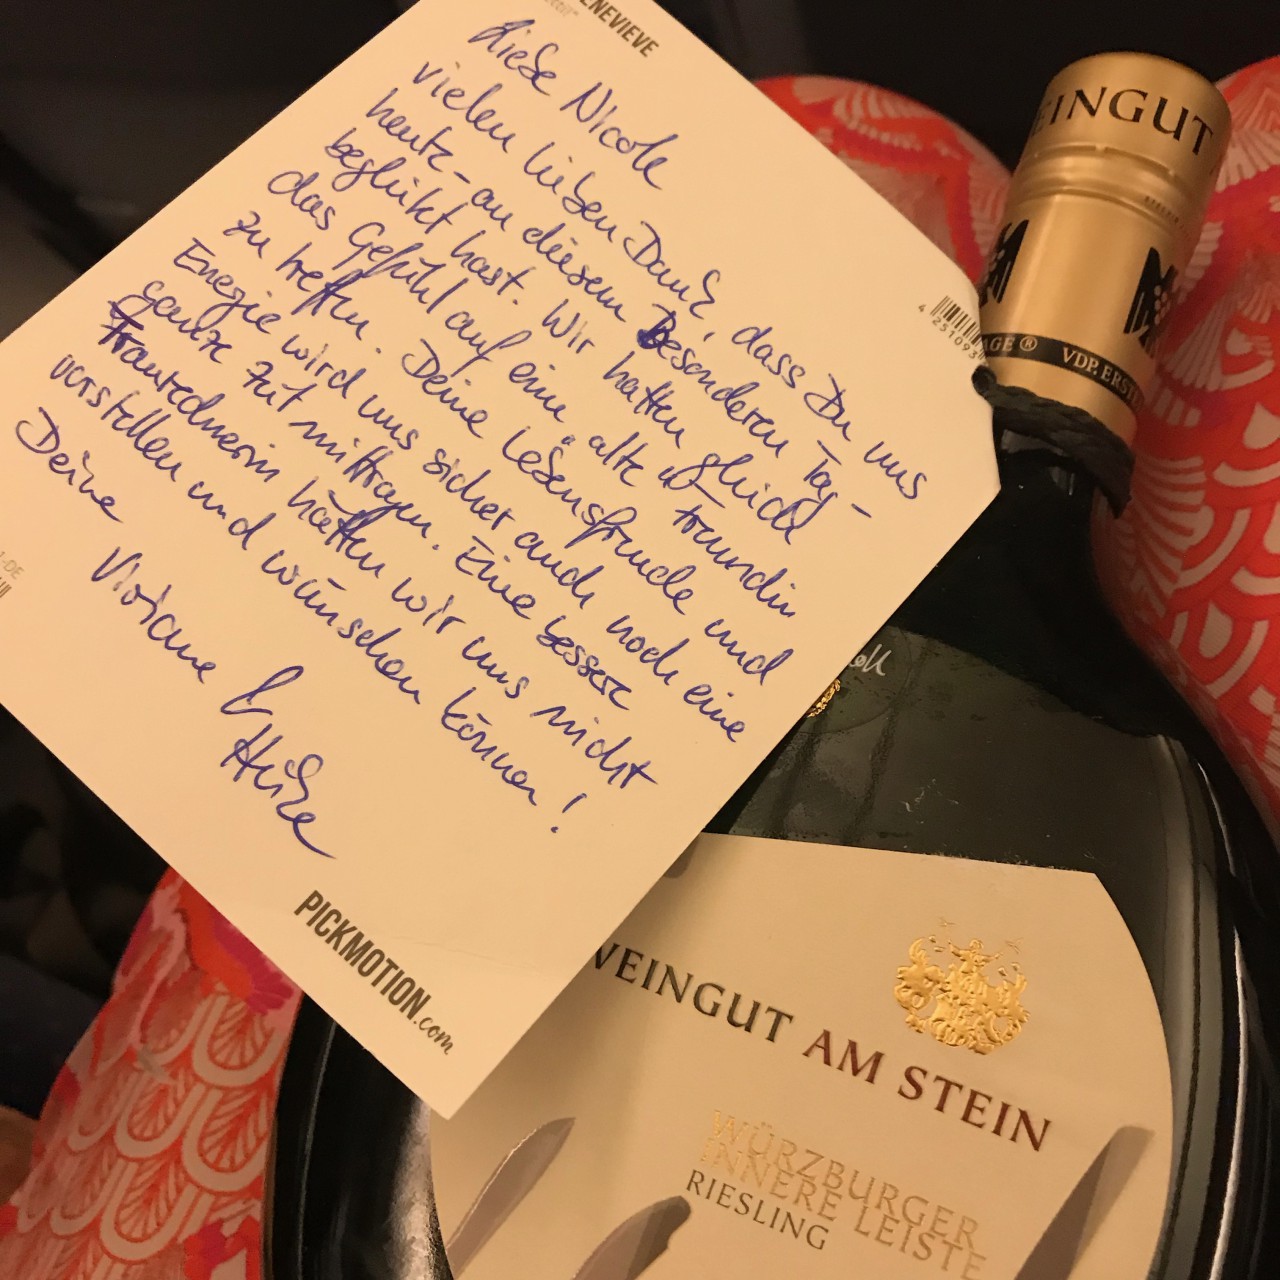 GENEVIEVE
Liebe Nicole
vielen lieben Dank, dass Du uns
heute - an diesem Besonderen Tag -
beglükt hast. Wir hatten gleich
das Gefühl auf eine alte Freundin
zu treffen. Deine Lebensfreude und
Energie wird uns sicher auch noch eine
ganze Zeit mittragen. Eine bessere
Traurednerin hätten wir uns nicht
vorstellen und wünschen können!
Deine
Viviane &
Heike
PICKMOTION.com
4 251093
-DE
EINGUT
AGE ® VDP. ERST
WEINGUT AM STEIN
WÜRZBURGER
INNERE LEISTE
RIESLING